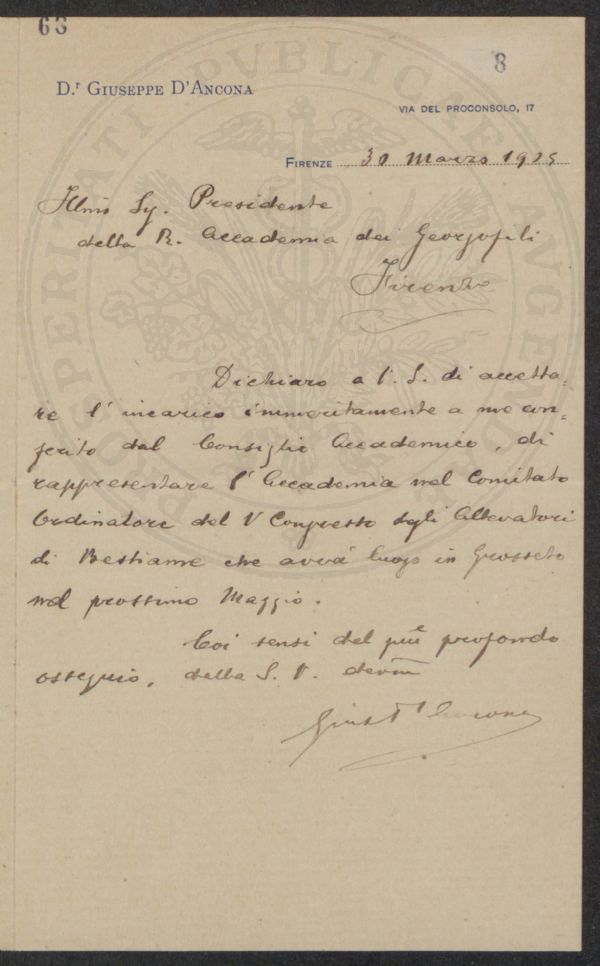 63
8
D.r GIUSEPPE D'ANCONA
VIA DEL PROCONSOLO, 17
FIRENZE 30 Marzo 1925
Illmo Sg. Presidente
della R. Accademia dei Georgofili
Firenze
Dichiaro a V. S. di accetta=
re l' incarico immeritamente a me con=
ferito dal Consiglio Accademico, di
rappresentare l' Accademia nel Comitato
Ordinatore del V Congresso degli Allevatori
di Bestiame che avrà luogo in Grosseto
nel prossimo Maggio.
Coi sensi del più profondo
ossequio, della S. V. devm
Gius d'Ancona
PROSPERITATI PUBLICAE AUGENDAE